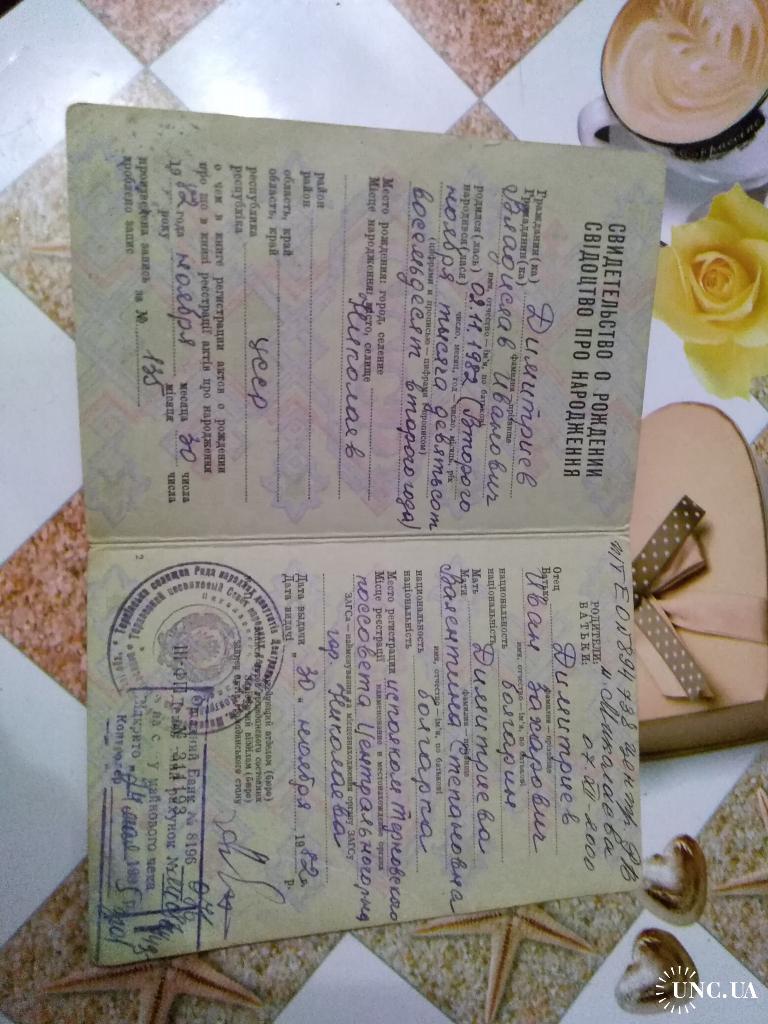 СВИДЕТЕЛЬСТВО О РОЖДЕНИИ
СВІДОЦТВО ПРО НАРОДЖЕННЯ
Гражданин(ка) Димитриев
Громадянин(ка) фамилия — прізвище
Владислав Иванович
имя, отчество — ім'я, по батькові
родился(лась) 02.11.1982 (Второго
народився(лася) число, месяц, год — число, місяць, рік
ноября тысяча девятьсот
(цифрами и прописью — цифрами і прописом)
восемьдесят второго года)
Место рождения: город, селение
Місце народження: місто, селище Николаев
район
район
область, край
область, край
республика
республіка УССР
о чем в книге регистрации актов о рождении
про що в книзі реєстрації актів про народження
1982 года ноября месяца 30 числа
року місяця числа
произведена запись за № 135
зроблено запис
2
ТПЕ ОN 894738 центр. РВ
м Миколаєва
07 XII-2000
РОДИТЕЛИ:
БАТЬКИ:
Отец Димитриев
Батько фамилия — прізвище
Иван Захарович
имя, отчество — ім'я, по батькові
национальность
національність болгарин
Мать Димитриева
Мати фамилия — прізвище
Валентина Степановна
имя, отчество — ім'я, по батькові
национальность
національність болгарка
Место регистрации исполком Терновского
Місце реєстрації наименование и местонахождение органа
поссовета Центрального р-на
ЗАГСа — найменування та місцезнаходження органу ЗАГСу
гор. Николаева
Дата выдачи
Дата видачі „30“ ноября 1982 г.
р.
Ощадний Банк № 8196
на с. у майнового чека
Відкрито
Контролер
Cappuccino
UNC.UA